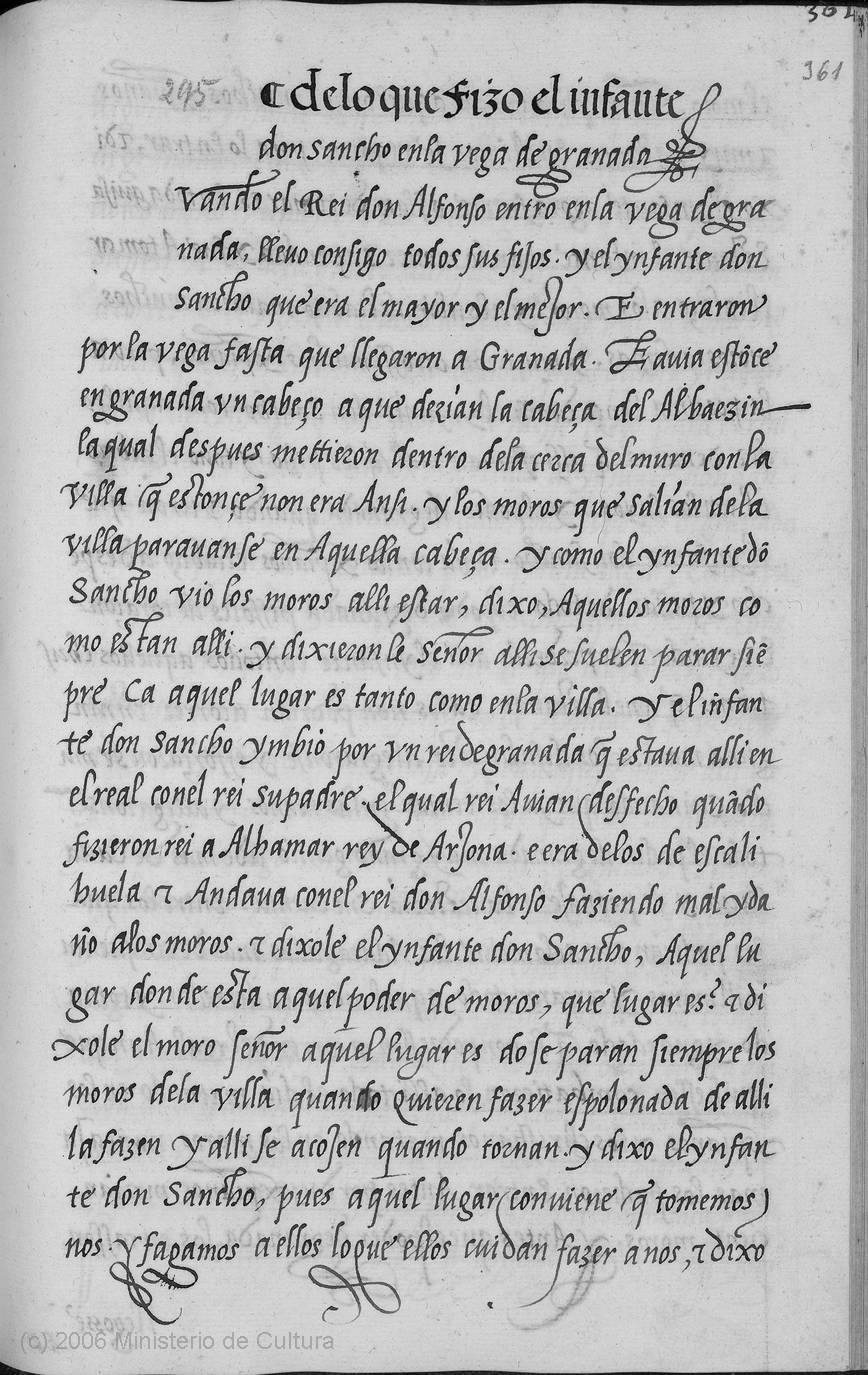 361
295.
¶ delo que fizo el infante
don sancho enla vega de granada
Vando el Rei don Alfonso entro enla vega de gra
nada, lleuo consigo todos sus fijos. y el ynfante don
Sancho que era el mayor y el mejor. E entraron
por la vega fasta que llegaron a Granada. E auia estõce
en granada vn cabeço a que dezían la cabeça del Albaezin
la qual despues mettieron dentro dela cerca del muro con la
villa q̃ estonçe non era Ansi. y los moros que salían de la
villa parauanse en Aquella cabeça. y como el ynfante dõ
Sancho vio los moros alli estar, dixo, Aquellos moros co
mo estan alli. y dixieronle Señor alli se suelen parar siẽ
pre Ca aquel lugar es tanto como enla villa. y el infan
te don Sancho ymbio por vn rei de granada q̃ estaua alli en
el real con el rei su padre. el qual rei Auian desfecho quãdo
fizieron rei a Alhamar rey de Arjona. e era delos de escali
huela τ Andaua conel rei don Alfonso faziendo mal y da
ño alos moros. τ dixole el ynfante don Sancho, Aquel lu
gar donde esta aquel poder de moros, que lugar es? τ di
xole el moro señor aquel lugar es do se paran siempre los
moros dela villa quando quieren fazer espolonada de alli
la fazen y alli se acojen quando tornan. y dixo el ynfan
te don Sancho, pues aquel lugar conviene q̃ tomemos
nos. y fagamos a ellos lo que ellos cuidan fazer a nos, τ dixo
(c) 2006 Ministerio de Cultura